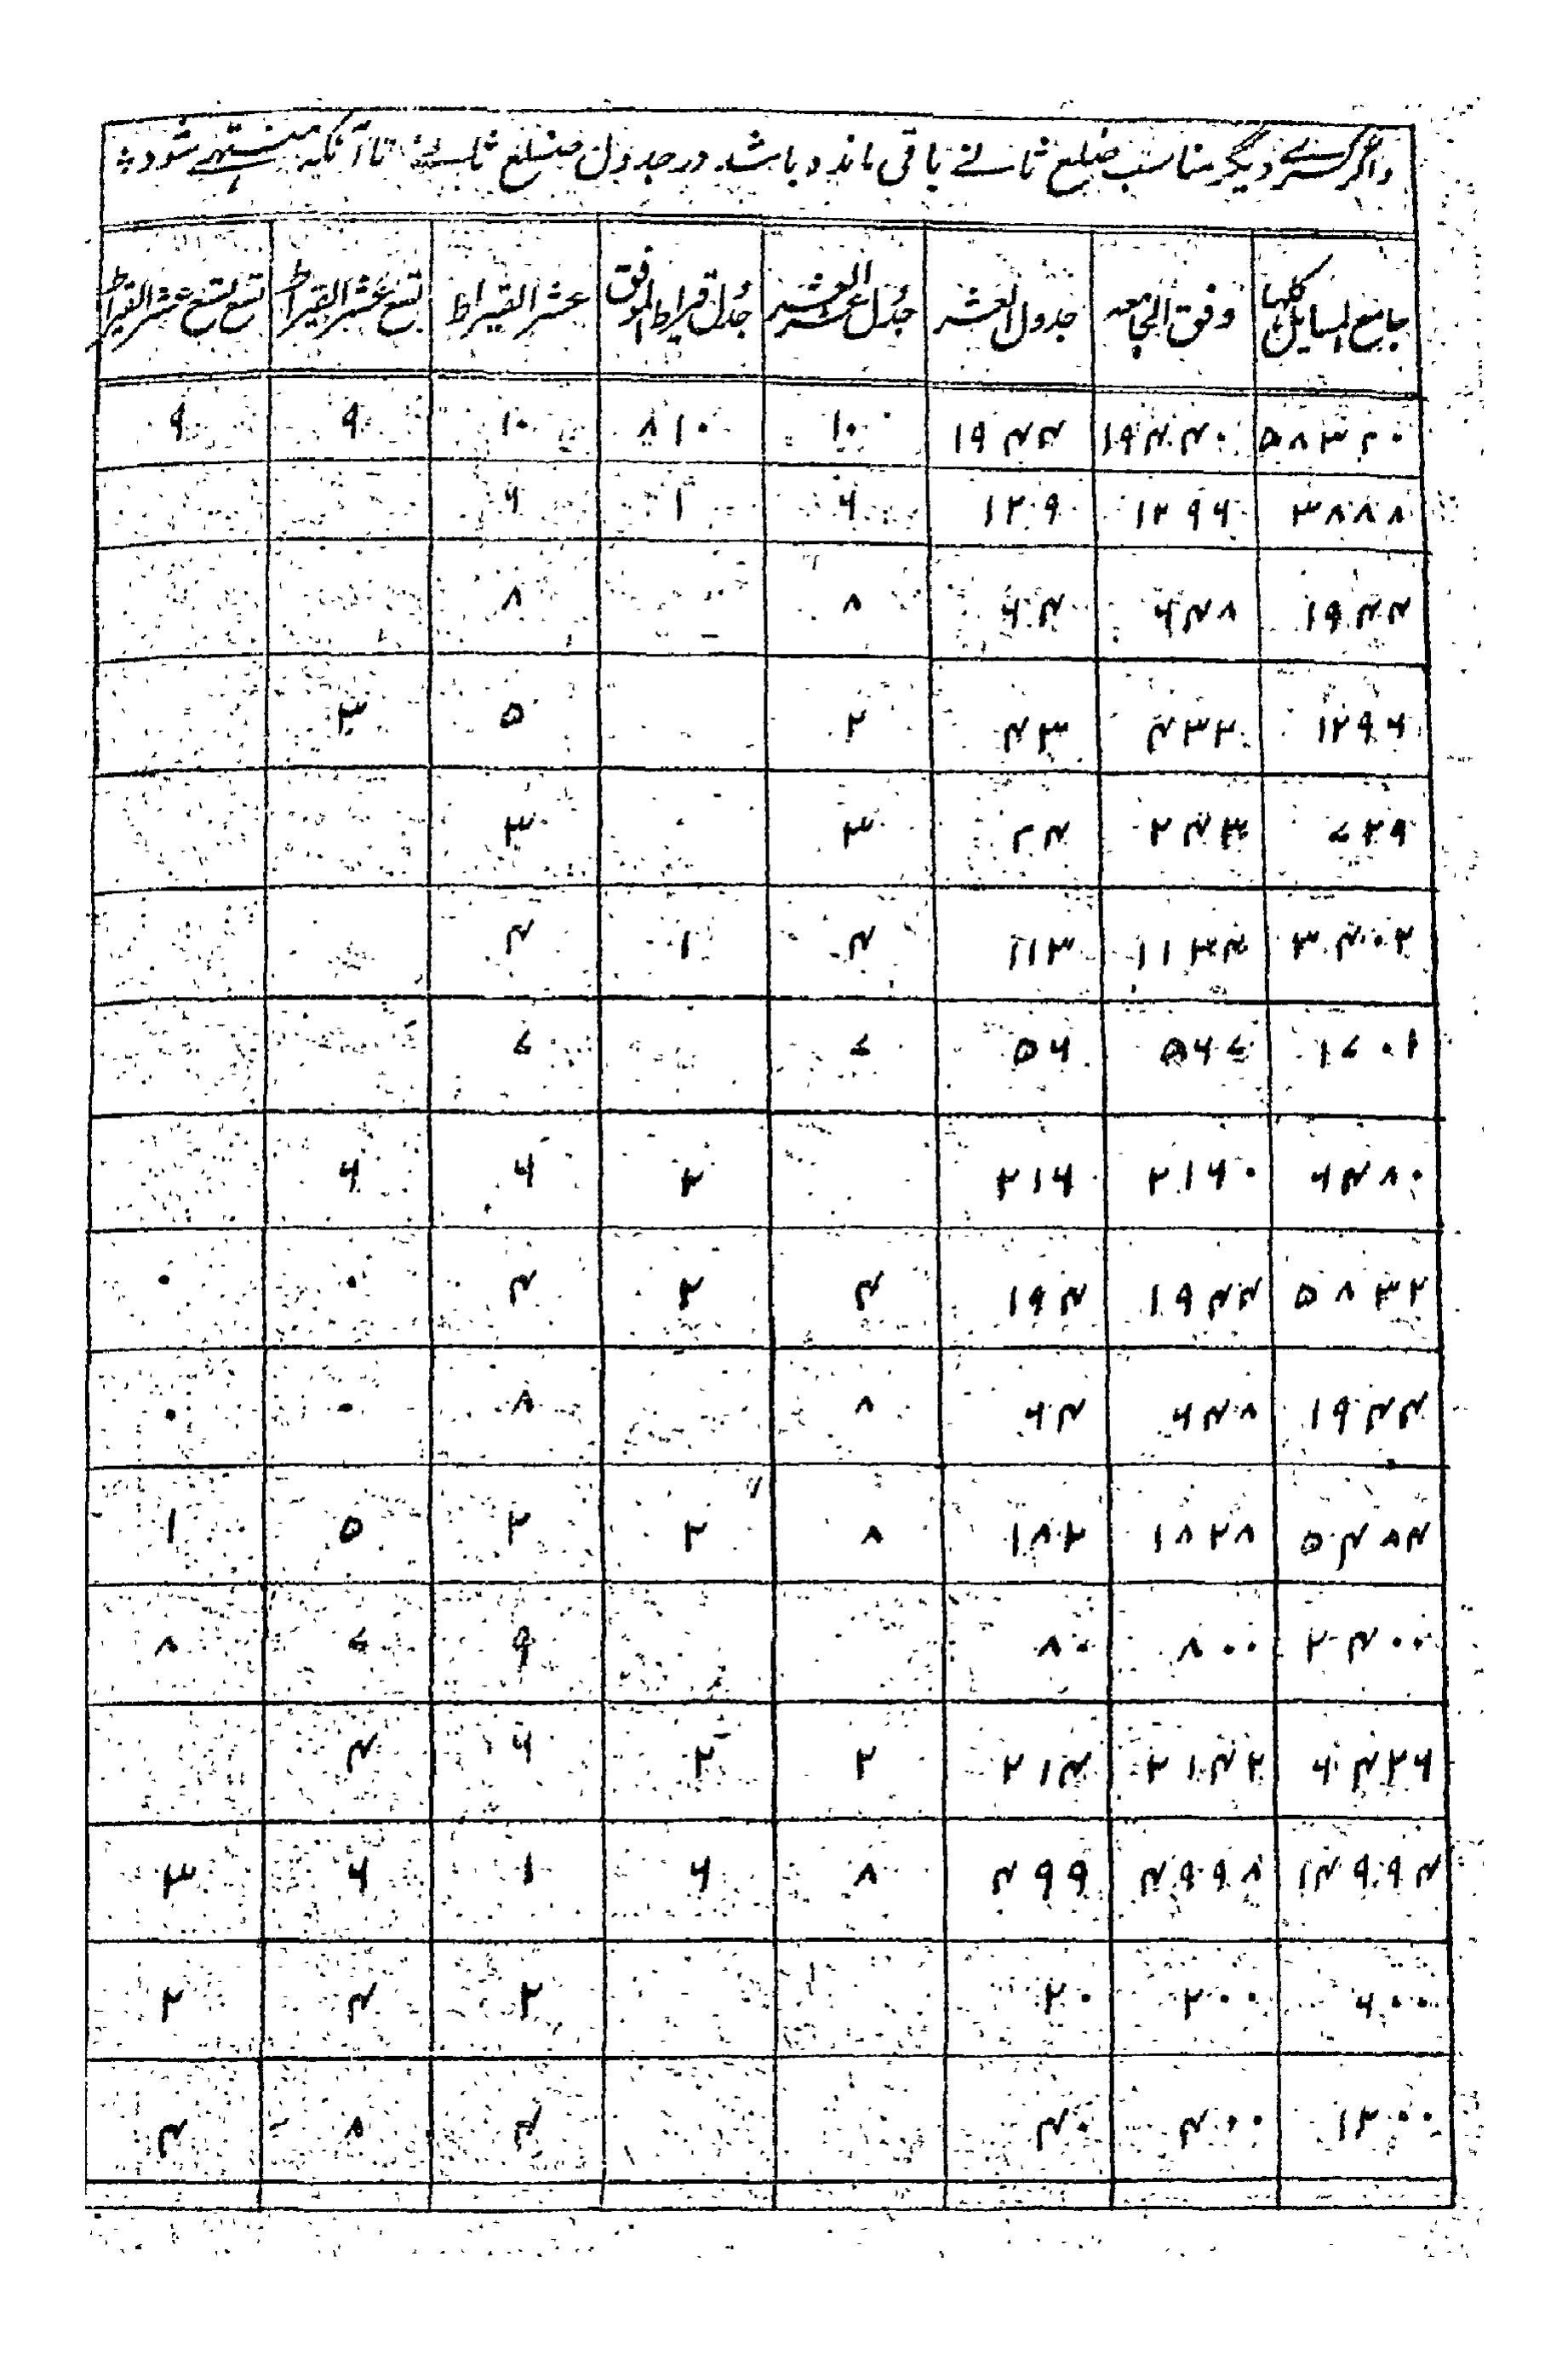 واگر کسرے دیگر مناسب ضلع ثانے باقی مانده باشد در جدول ضلع ثالث تا آنکه منتہے شود
جامع المسایل کلها وفق الجامعه جدول العشر جدول عشر العشر جدول قیراط الموفق عشر القیراط تسع عشر القیراط تسع تسع عشر القیراط
۵۸۳۲۰ ۱۹۴۴۰ ۱۹۴۴ ۱۰ ۸۱۰ ۱۰ ۹ ۹
۳۸۸۸ ۱۲۹۶ ۱۲۹ ۶ ۱ ۶
۱۹۴۴ ۶۴۸ ۶۴ ۸ ۸
۱۲۹۶ ۴۳۲ ۴۳ ۲ ۵ ۳
۷۲۹ ۲۴۳ ۲۴ ۳ ۳
۳۴۰۲ ۱۱۳۴ ۱۱۳ ۴ ۱ ۴
۱۷۰۱ ۵۶۷ ۵۶ ۷ ۷
۶۴۸۰ ۲۱۶۰ ۲۱۶ ۲ ۶ ۶
۵۸۳۲ ۱۹۴۴ ۱۹۴ ۴ ۲ ۴ ۰ ۰
۱۹۴۴ ۶۴۸ ۶۴ ۸ ۸ ۰ ۰
۵۴۸۴ ۱۸۲۸ ۱۸۲ ۸ ۲ ۲ ۵ ۱
۲۴۰۰ ۸۰۰ ۸۰ ۹ ۷ ۸
۶۴۲۶ ۲۱۴۲ ۲۱۴ ۲ ۲ ۶ ۴
۱۴۹۹۴ ۴۹۹۸ ۴۹۹ ۸ ۶ ۱ ۶ ۳
۶۰۰ ۲۰۰ ۲۰ ۲ ۴ ۲
۱۲۰۰ ۴۰۰ ۴۰ ۴ ۸ ۴